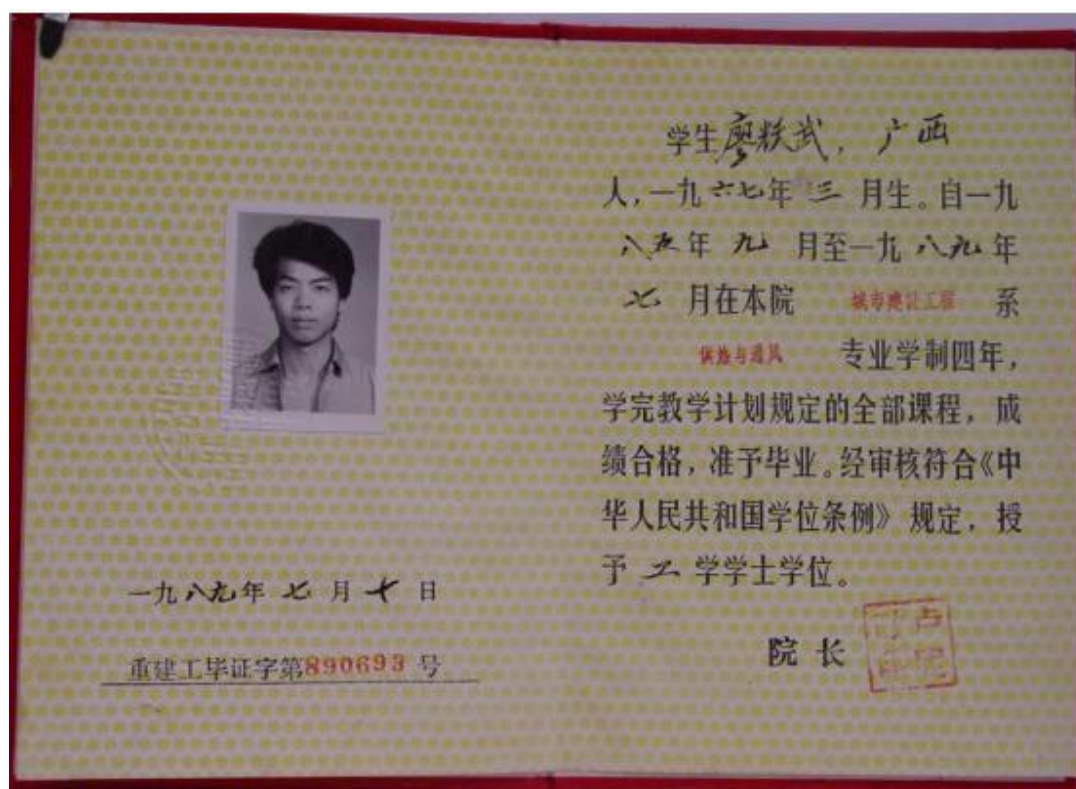 一九八九年 七 月 十 日
重建工毕证字第890693号
学生廖轶武，广西
人，一九六七年 三 月生。自一九
八五年 九 月至一九八九年
七 月在本院 城市建设工程 系
供热与通风 专业学制四年，
学完教学计划规定的全部课程，成
绩合格，准予毕业。经审核符合《中
华人民共和国学位条例》规定，授
予 工 学学士学位。
院 长